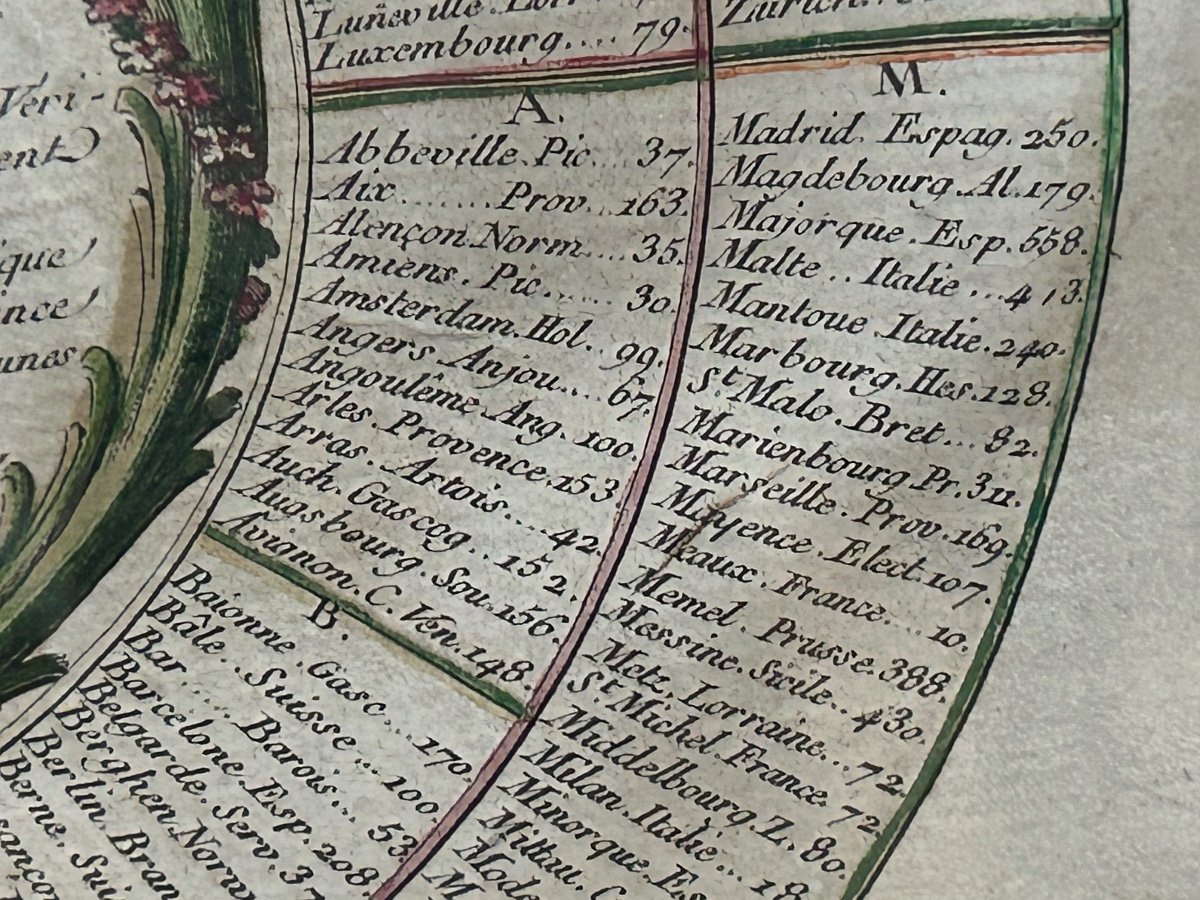 Veri-
ent
que
ince
unes
Luñeville
Luxembourg.... 79.
A.
Abbeville. Pic... 37.
Aix....... Prov... 163.
Alençon. Norm.... 35.
Amiens. Pic...... 30.
Amsterdam. Hol.. 99.
Angers. Anjou.... 67.
Angoulême. Ang. 100.
Arles. Provence. 153
Arras. Artois.... 42.
Auch. Gascog.. 152.
Augsbourg. Sou. 156.
Avignon. C. Ven. 148.
B.
Baionne. Gasc... 170.
Bâle. Suisse... 100.
Bar.... Barois... 53.
Barcelone. Esp. 208.
Belgarde. Serv. 37
Berghen. Norw
Berlin. Bran
Berne. Sui
ançon
Zurich
M.
Madrid. Espag. 250.
Magdebourg. Al. 179.
Majorque. Esp. 558.
Malte.. Italie... 413.
Mantoue. Italie. 240.
Marbourg. Hes. 128.
St Malo. Bret... 82.
Marienbourg Pr. 311.
Marseille. Prov. 169.
Mayence. Elect. 107.
Meaux. France.... 10.
Memel. Prusse. 388.
Messine. Sicile.. 430.
Metz. Lorraine... 72.
St Michel. France. 72.
Middelbourg. Z. 80.
Milan. Italie... 18
Minorque. Es
Mittau. C
Mode
M